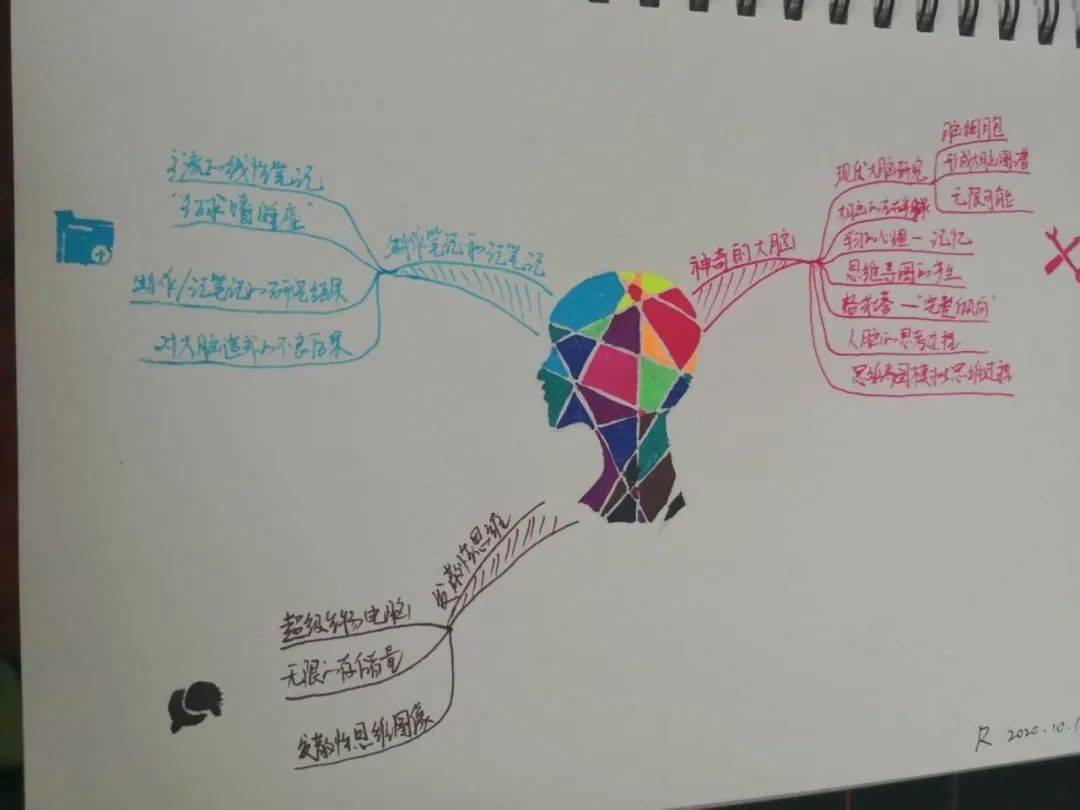 神奇的大脑
现代大脑研究
脑细胞
形成大脑图谱
无限可能
学习的心理一记忆
思维导图的诞生
格式塔一"完整倾向"
人脑的思考过程
思维导图模拟思维过程
发散性思维
超级生物电脑
无限的存储量
发散性思维图像
制作笔记和记笔记
主流的线性笔记
"环球嗜睡症"
制作/记笔记的研究结果
对大脑造成的不良后果
R 2020.10.1